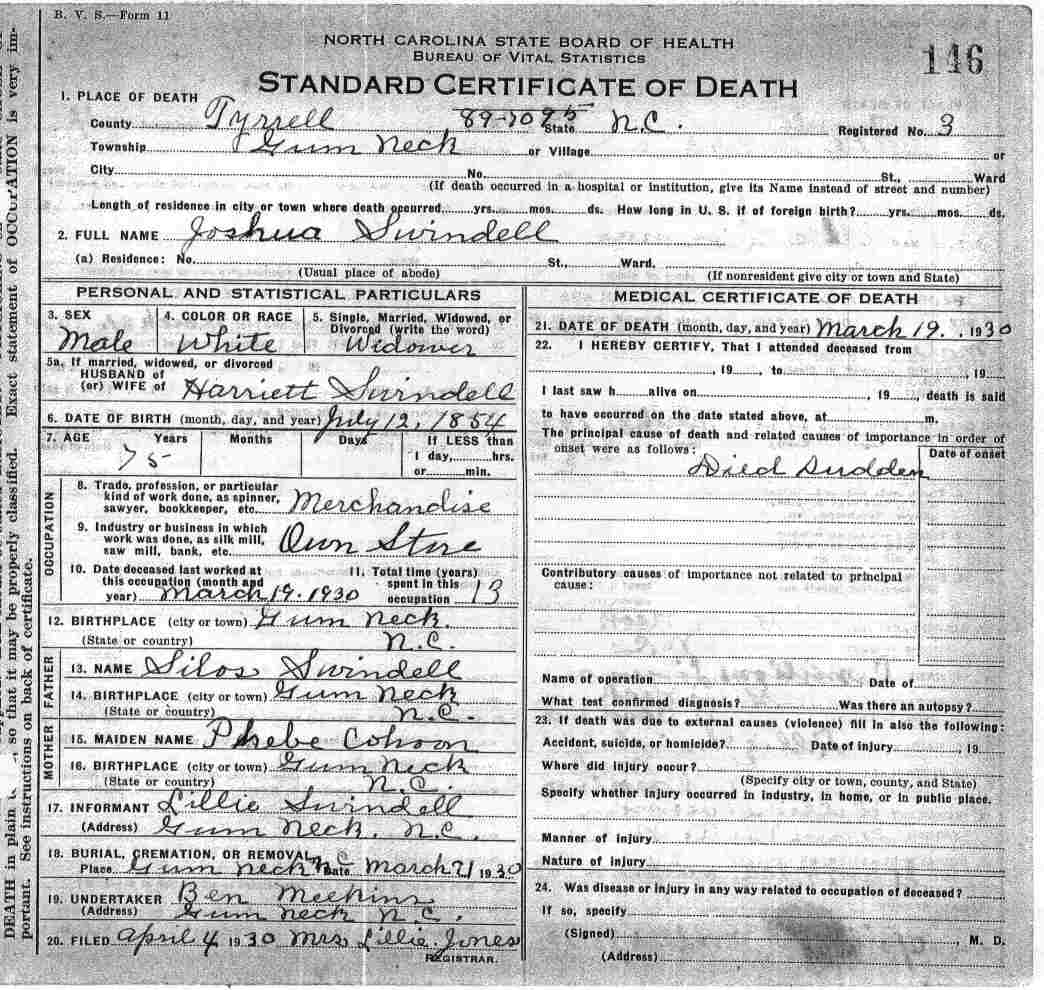 B. V. S.—Form 11
NORTH CAROLINA STATE BOARD OF HEALTH
BUREAU OF VITAL STATISTICS
146
STANDARD CERTIFICATE OF DEATH
1. PLACE OF DEATH
County Tyrrell 89-7095 State N.C. Registered No. 3
Township Gum Neck or Village or
City No. St., Ward
(If death occurred in a hospital or institution, give its Name instead of street and number)
Length of residence in city or town where death occurred yrs. mos. ds. How long in U. S. if of foreign birth? yrs. mos. ds.
2. FULL NAME Joshua Swindell
(a) Residence: No. St., Ward.
(Usual place of abode) (If nonresident give city or town and State)
PERSONAL AND STATISTICAL PARTICULARS
3. SEX 4. COLOR OR RACE 5. Single, Married, Widowed, or
Divorced (write the word)
Male White Widower
5a. If married, widowed, or divorced
HUSBAND of
(or) WIFE of Harriett Swindell
6. DATE OF BIRTH (month, day, and year) July 12, 1854
7. AGE Years Months Days If LESS than
1 day, hrs.
75 or min.
OCCUPATION
8. Trade, profession, or particular
kind of work done, as spinner,
sawyer, bookkeeper, etc. Merchandise
9. Industry or business in which
work was done, as silk mill,
saw mill, bank, etc. Own Store
10. Date deceased last worked at
this occupation (month and
year) March 19. 1930
11. Total time (years)
spent in this
occupation 13
12. BIRTHPLACE (city or town) Gum Neck.
(State or country) N.C.
FATHER
13. NAME Silos Swindell
14. BIRTHPLACE (city or town) Gum Neck
(State or country) N.C.
MOTHER
15. MAIDEN NAME Phebe Cohoon
16. BIRTHPLACE (city or town) Gum Neck
(State or country) N.C.
17. INFORMANT Lillie Swindell
(Address) Gum Neck. N.C.
18. BURIAL, CREMATION, OR REMOVAL
Place Gum Neck NC Date March 21 1930
19. UNDERTAKER Ben Meekins
(Address) Gum Neck N.C.
20. FILED April 4 1930 Mrs Lillie Jones
REGISTRAR.
MEDICAL CERTIFICATE OF DEATH
21. DATE OF DEATH (month, day, and year) March 19. , 1930
22. I HEREBY CERTIFY, That I attended deceased from
, 19 , to , 19
I last saw h alive on , 19 , death is said
to have occurred on the date stated above, at m.
The principal cause of death and related causes of importance in order of
onset were as follows: Date of onset
Died Sudden
Contributory causes of importance not related to principal
cause:
Name of operation Date of
What test confirmed diagnosis? Was there an autopsy?
23. If death was due to external causes (violence) fill in also the following:
Accident, suicide, or homicide? Date of injury , 19
Where did injury occur?
(Specify city or town, county, and State)
Specify whether injury occurred in industry, in home, or in public place.
Manner of injury
Nature of injury
24. Was disease or injury in any way related to occupation of deceased?
If so, specify
(Signed) , M. D.
(Address)
DEATH in plain so that it may be properly classified. Exact statement of OCCUPATION is very im-
portant. See instructions on back of certificate.